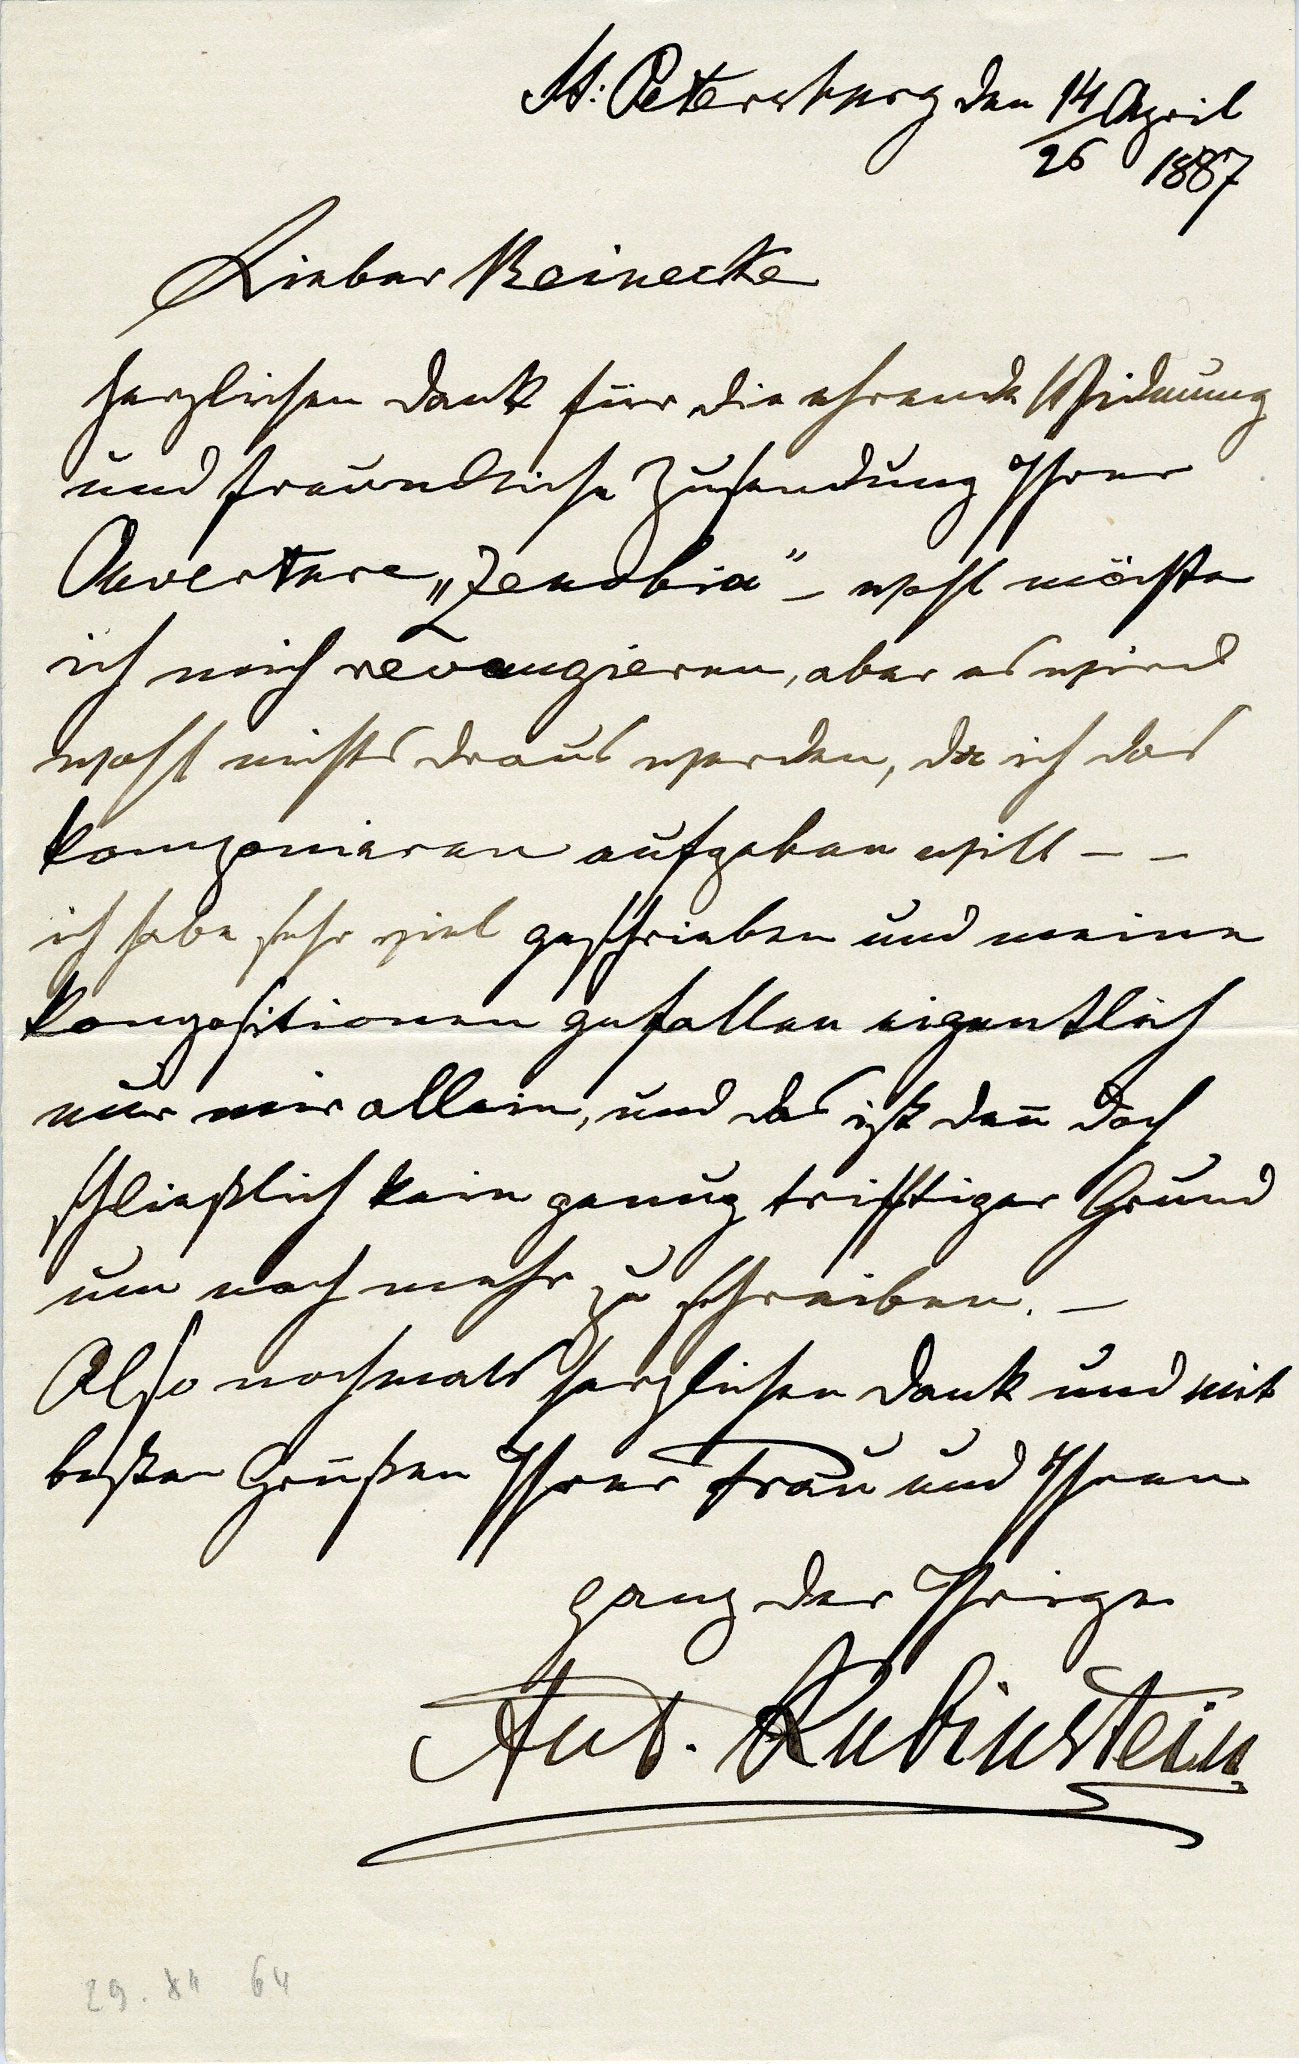 St: Petersburg den 14 April
26 1887
Lieber Reinecke
herzlichen Dank für die ehrende Widmung
und freundliche Zusendung Ihrer
Ouverture „Zenobia" – wohl möchte
ich mich revangieren, aber es wird
wohl nichts draus werden, da ich das
komponieren aufgeben will – –
ich habe sehr viel geschrieben und meine
Kompositionen gefallen eigentlich
nur mir allein, und das ist den̄ doch
schließlich kein genug trifftiger Grund
um noch mehr zu schreiben. –
Also nochmals herzlichen Dank und mit
besten Grüßen Ihrer Frau und Ihnen
ganz der Ihrige
Ant. Rubinstein
29. XII 64